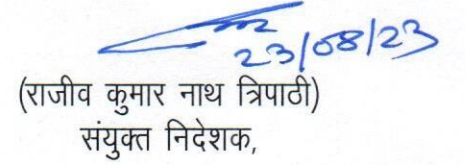 23/08/23
(राजीव कुमार नाथ त्रिपाठी)
संयुक्त निदेशक,